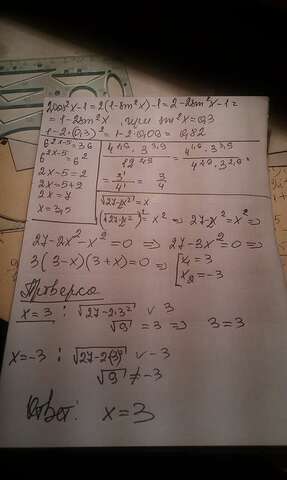 2cos²x-1=2(1-sin²x)-1=2-2sin²x-1=
=1-2sin²x, при sin²x=0,3
1-2·(0,3)²=1-2·0,09=0,82
6^{2x-5}=36
6^{2x-5}=6²
2x-5=2
2x=5+2
2x=7
x=3,5
=3¹/4¹=3/4
√27-2x²=x
27-2x²-x²=0 => 27-3x²=0 =>
3(3-x)(3+x)=0 => [x₁=3
x₂=-3
Проверка
x=3: √27-2·3² v 3
√9=3 => 3=3
x=-3: √27-2(3)² v -3
√9≠-3
Ответ: x=3